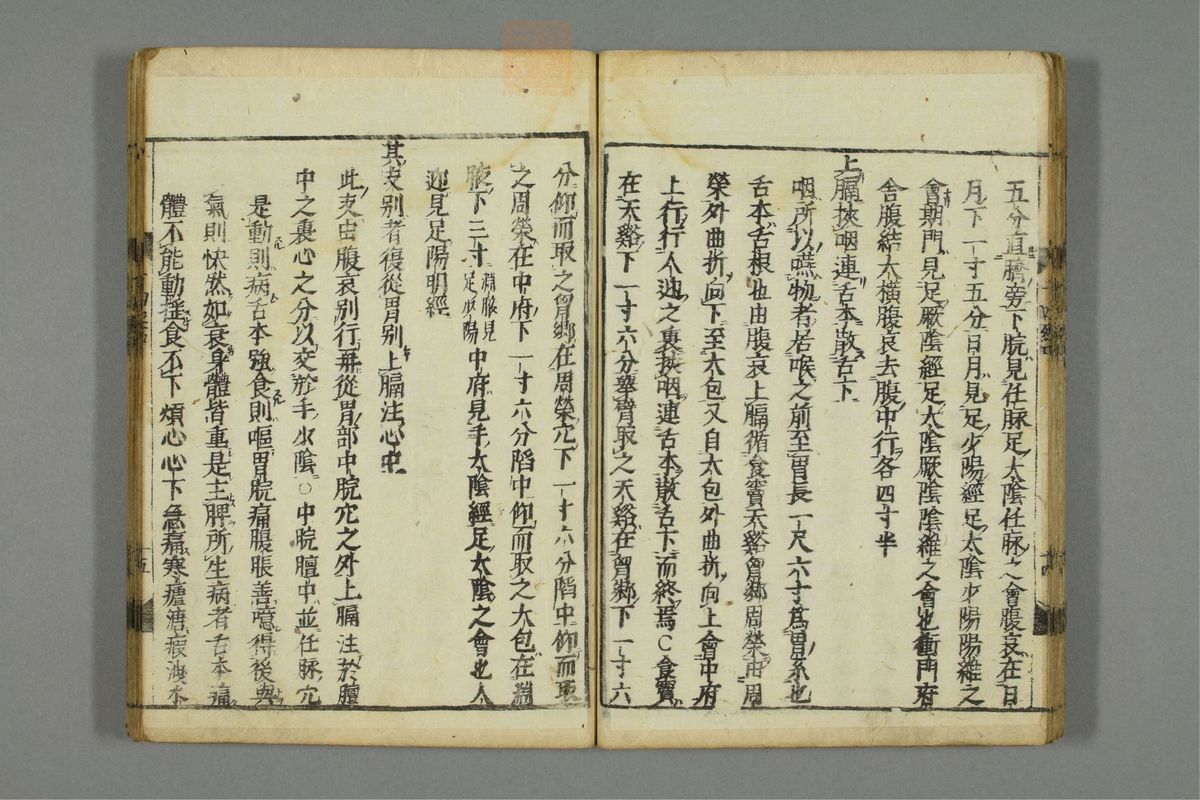 五分直臍旁下脘見任脉足太陰任脉之會腹哀在日
月下一寸五分日月見足少陽經足太陰少陽陽維之
會期門見足厥陰經足太陰厥陰陰維之會也衝門府
舍腹結大橫腹哀去腹中行各四寸半
上膈挾咽連舌本散舌下
咽所以嚥物者居喉之前至胃長一尺六寸爲胃系也
舌本舌根也由腹哀上膈循食竇天谿胷鄉周榮由周
榮外曲折向下至大包又自大包外曲折向上會中府
上行行人迎之裏挾咽連舌本散舌下而終焉○食竇
在天谿下一寸六分舉臂取之天谿在胷鄉下一寸六
分仰而取之胷鄉在周榮穴下一寸六分陷中仰而取
之周榮在中府下一寸六分陷中仰而取之大包在淵
腋下三寸淵腋見足少陽中府見手太陰經足太陰之會也人
迎見足陽明經
其支别者復從胃别上膈注心中
此支由腹哀别行再從胃部中脘穴之外上膈注於膻
中之裏心之分以交於手少陰○中脘膻中並任脉穴
是動則病舌本強食則嘔胃脘痛腹脹善噫得後與
氣則快然如衰身體皆重是主脾所生病者舌本痛
體不能動搖食不下煩心心下急痛寒瘧溏瘕洩水